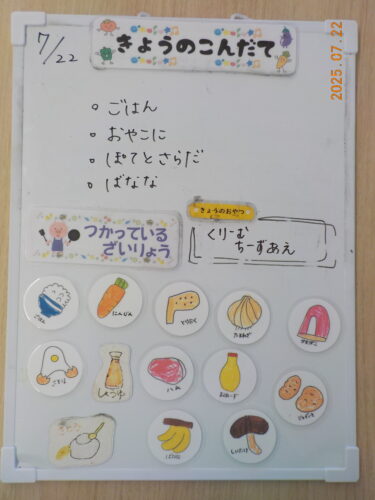 7/22
きょうのこんだて
2025.07.22
。ごはん
。おやこに
。ぽてとさらだ
。ばなな
つかっている
ざいりょう
きょうのおやつ
くりーむ
ちーずあえ
ごはん
にんじん
とりにく
たまねぎ
たまご
しょうゆ
ハム
じゃがいも
ばなな
しいたけ